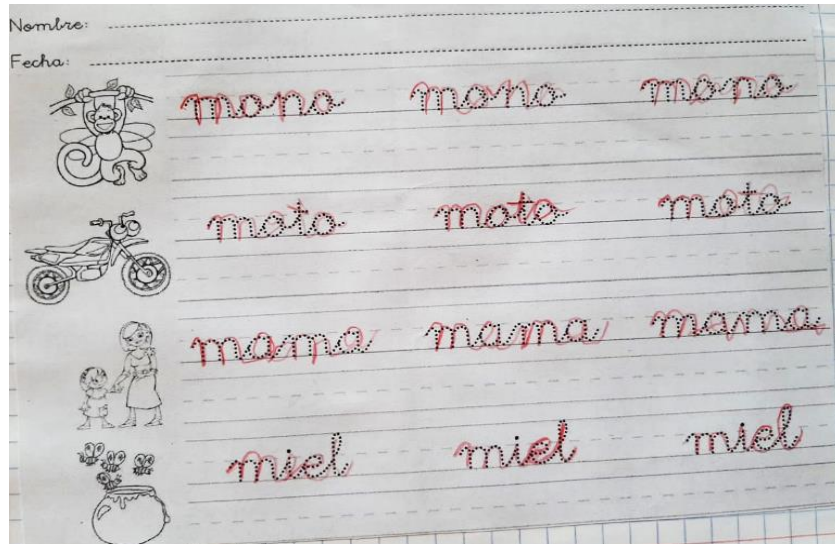 Nombre:
Fecha:
mono mono mono
moto moto moto
mama mama mama
miel miel miel